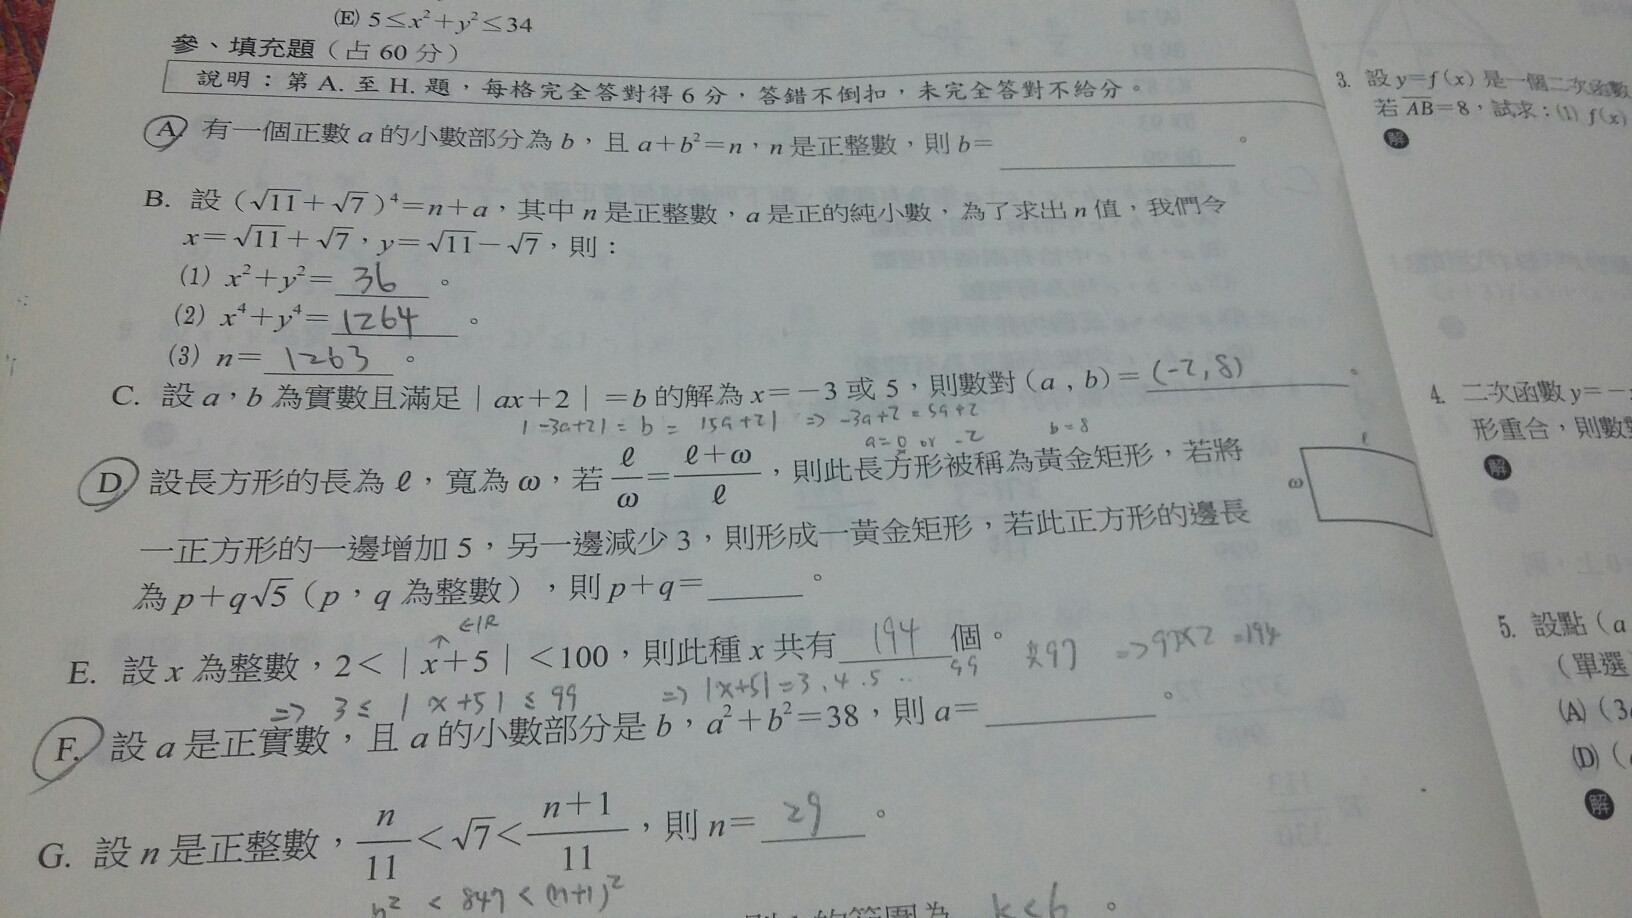 (E) 5≤x²+y²≤34
參、填充題（占 60 分）
說明：第 A. 至 H. 題，每格完全答對得 6 分，答錯不倒扣，未完全答對不給分。
A. 有一個正數 a 的小數部分為 b，且 a+b²=n，n 是正整數，則 b=＿＿＿。
B. 設（√11+√7）⁴=n+a，其中 n 是正整數，a 是正的純小數，為了求出 n 值，我們令
x=√11+√7，y=√11−√7，則：
(1) x²+y²= 36 。
(2) x⁴+y⁴= 1264 。
(3) n= 1263 。
C. 設 a，b 為實數且滿足｜ax+2｜=b 的解為 x=−3 或 5，則數對（a , b）= (-2,8) 。
|-3a+2| = b = |5a+2| => -3a+2 = 5a+2
a=0 or -2 b=8
D. 設長方形的長為 ℓ，寬為 ω，若 ℓ/ω=(ℓ+ω)/ℓ，則此長方形被稱為黃金矩形，若將
一正方形的一邊增加 5，另一邊減少 3，則形成一黃金矩形，若此正方形的邊長
為 p+q√5（p，q 為整數），則 p+q=＿＿＿。
ℓ
ω
∈R
E. 設 x 為整數，2<｜x+5｜<100，則此種 x 共有 194 個。
共97 => 97×2 =194
=> 3≤ |x+5| ≤ 99 => |x+5| = 3.4.5 .. 99
F. 設 a 是正實數，且 a 的小數部分是 b，a²+b²=38，則 a=＿＿＿。
G. 設 n 是正整數，n/11<√7<(n+1)/11，則 n= 29 。
n² < 847 < (n+1)²
的範圍為 k<6 。
3. 設 y=f(x) 是一個二次函數
若 AB=8，試求：(1) f(x)
解
4. 二次函數 y=−
形重合，則數對
解
5. 設點（a
（單選
(A)（3
(D)（
解